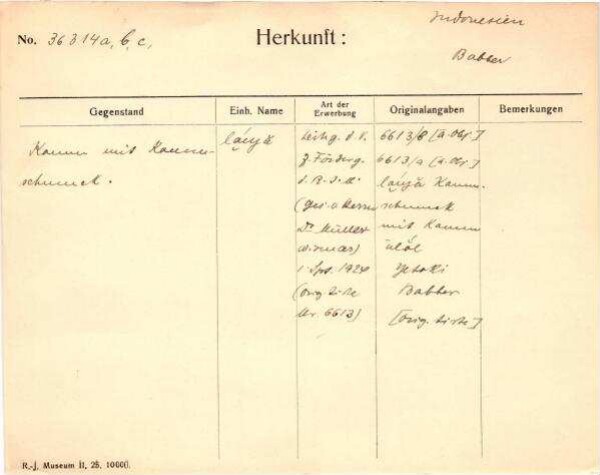 No. 36314a, b, c,
Herkunft:
Indonesien
Babber
Gegenstand
Einh. Name
Art der Erwerbung
Originalangaben
Bemerkungen
Kamm mit Kamm-
schmuck.
Leihg. d. V.
z. Förderg.
d. R. J. M.
(ges. v. Herrn
Dr. Müller
Wismar)
1924
(orig. Liste
Nr. 6613)
6613/8 [a. Obj.]
6613/a [a. Obj.]
Kamm-
schmuck
mit Kamm
Babber
[orig. Liste]
R.-J. Museum II, 25. 10000.